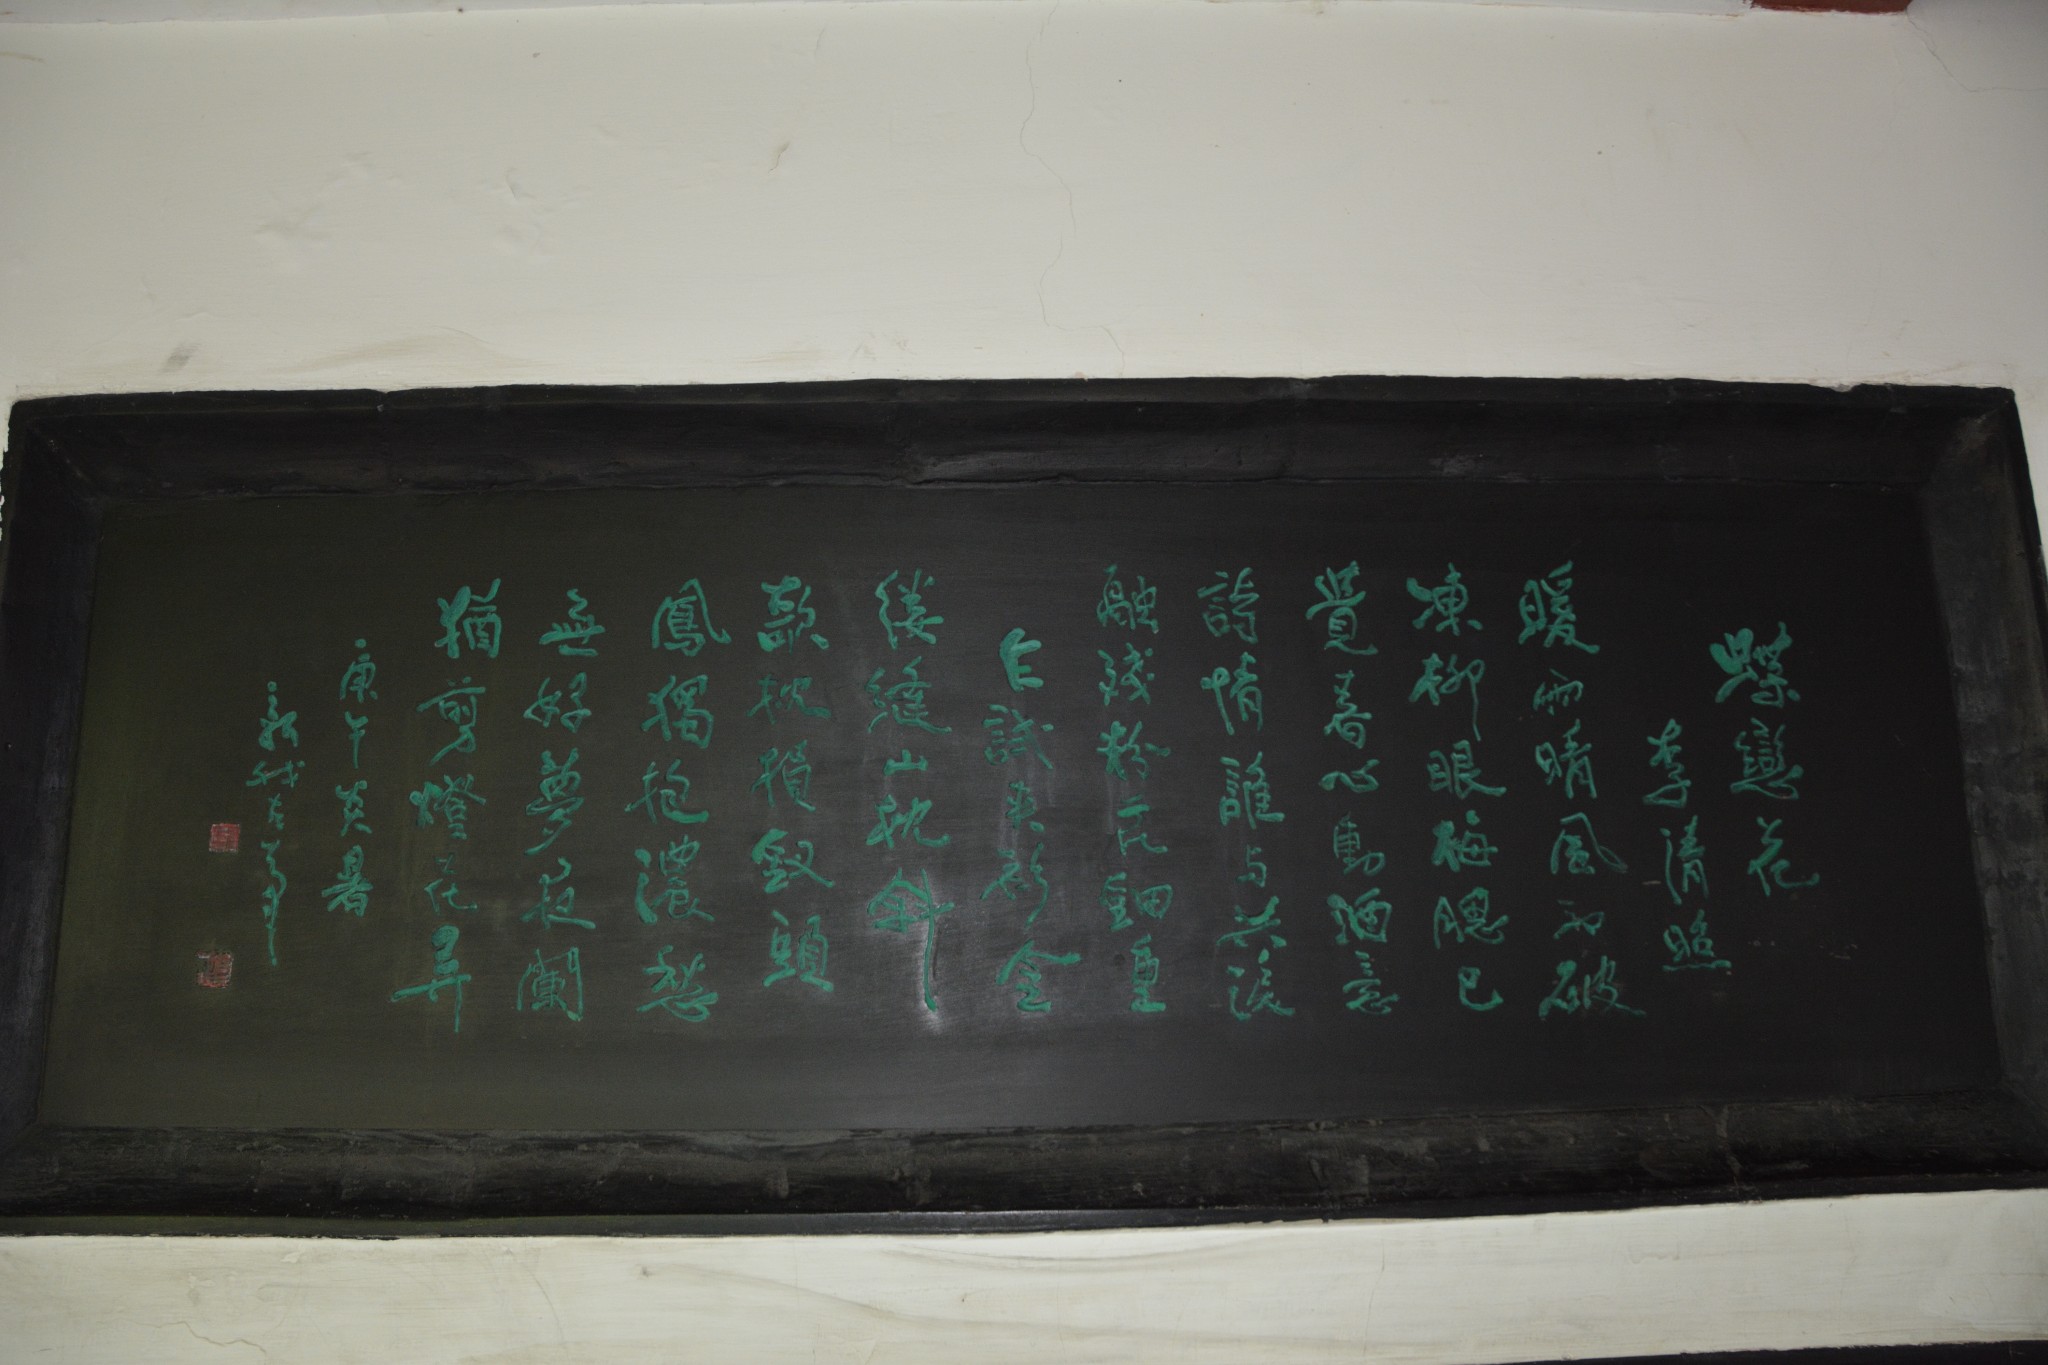 蝶戀花
李清照
暖雨晴風初破
凍柳眼梅腮已
覺春心動酒意
詩情誰与共淚
融殘粉花鈿重
乍試夾衫金
縷縫山枕斜
欹枕損釵頭
鳳獨抱濃愁
無好夢夜闌
猶剪燈花弄
庚午炎暑
新我左筆